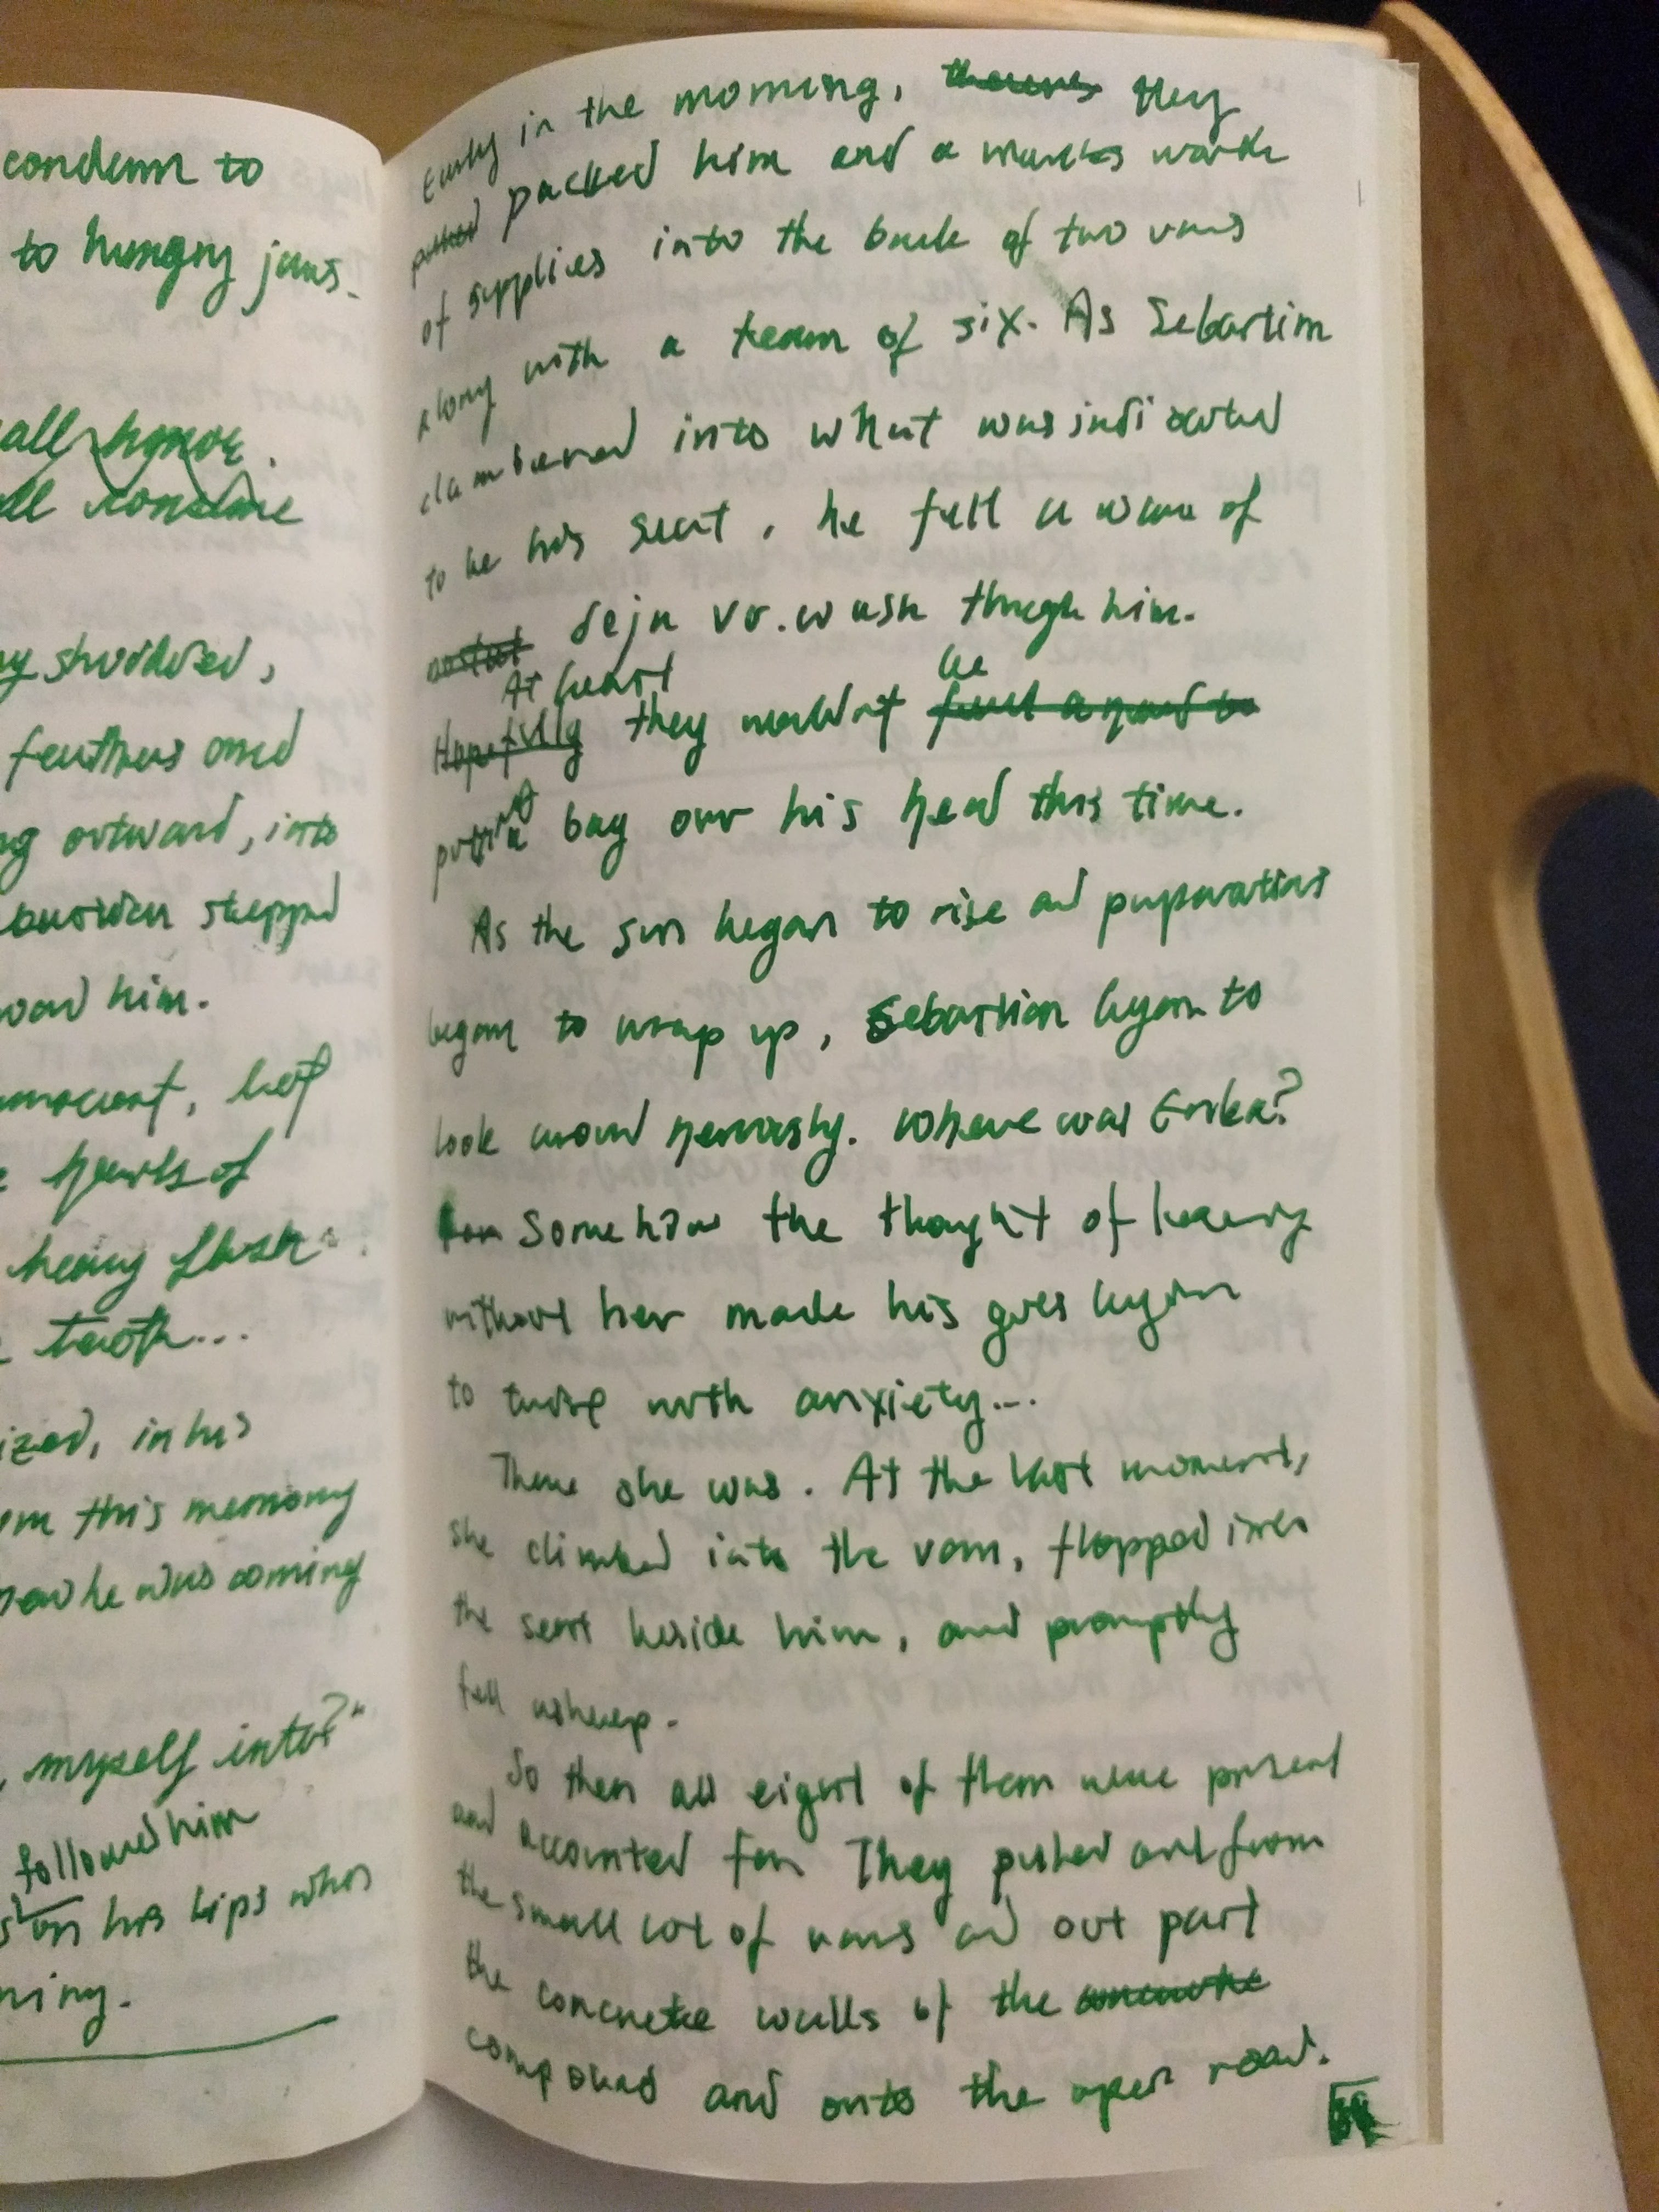 condemn to
to hungry jaws.
all
all consume
shuddered,
feathers and
outward, into
stepped
him.
hot
hearts of
heavy flesh
tooth...
in his
this memory
he was coming
myself into?"
followed him
on his lips when
Early in the morning, they
packed him and a weeks worth
of supplies into the back of two vans
along with a team of six. As Sebastian
clambered into what was indicated
to be his seat, he felt a wave of
deja vu. wash through him.
At least be
Hopefully they wouldn't
putting a bag over his head this time.
As the sun began to rise and preparations
began to wrap up, Sebastian began to
look around nervously. Where was Erika?
Somehow the thought of leaving
without her made his guts begin
to twist with anxiety...
There she was. At the last moment,
she climbed into the van, flopped into
the seat beside him, and promptly
fell asleep.
So then all eight of them were present
and accounted for. They pushed out from
the small lot of vans and out past
the concrete walls of the concrete
compound and onto the open road.